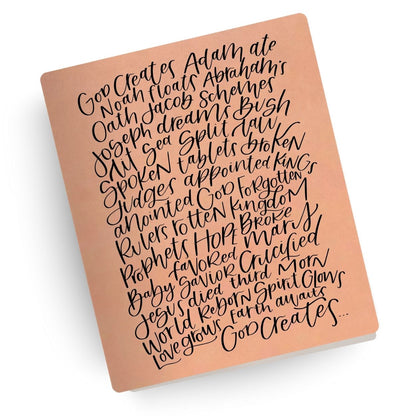 God Creates Adam ate
Noah floats Abraham's
Oath Jacob Schemes
Joseph dreams Bush
lit Sea Split Law
Spoken tablets broken
Judges appointed Kings
anointed God Forgotten
Rulers rotten Kingdom
Prophets Hope Broke
favored Mary
Baby Savior Crucified
Jesus died third Morn
World Reborn Spirit Glows
Love grows Earth awaits
God Creates...